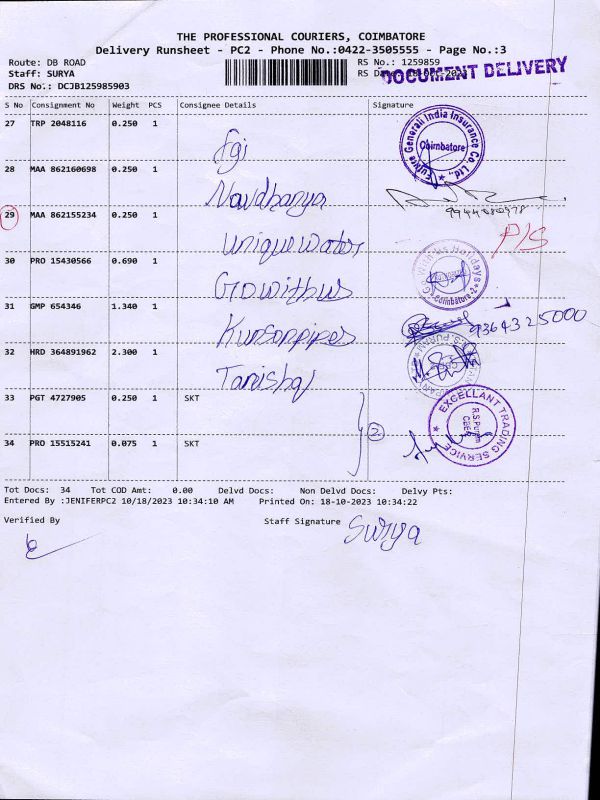 THE PROFESSIONAL COURIERS, COIMBATORE
Delivery Runsheet - PC2 - Phone No.:0422-3505555 - Page No.:3
Route: DB ROAD
RS No.: 1259859
Staff: SURYA
RS Date: 18-Oct-2023
DOCUMENT DELIVERY
DRS No.: DCJB125985903
S No Consignment No Weight PCS Consignee Details Signature
27 TRP 2048116 0.250 1 fgi
Future Generali India Insurance Co. Ltd., Coimbatore
28 MAA 862160698 0.250 1 Navdhanya
29 MAA 862155234 0.250 1 Unique water
P/S
30 PRO 15430566 0.690 1 Gowithus
Go With Us Holidays Coimbatore-2
31 GMP 654346 1.340 1 Kunsonpipes
9364325000
32 HRD 364891962 2.300 1 Tanishq
33 PGT 4727905 0.250 1 SKT
2
EXCELLANT TRADING SERVICE R.S.Puram CBE
34 PRO 15515241 0.075 1 SKT
Tot Docs: 34 Tot COD Amt: 0.00 Delvd Docs: Non Delvd Docs: Delvy Pts:
Entered By :JENIFERPC2 10/18/2023 10:34:10 AM Printed On: 18-10-2023 10:34:22
Verified By Staff Signature Surya